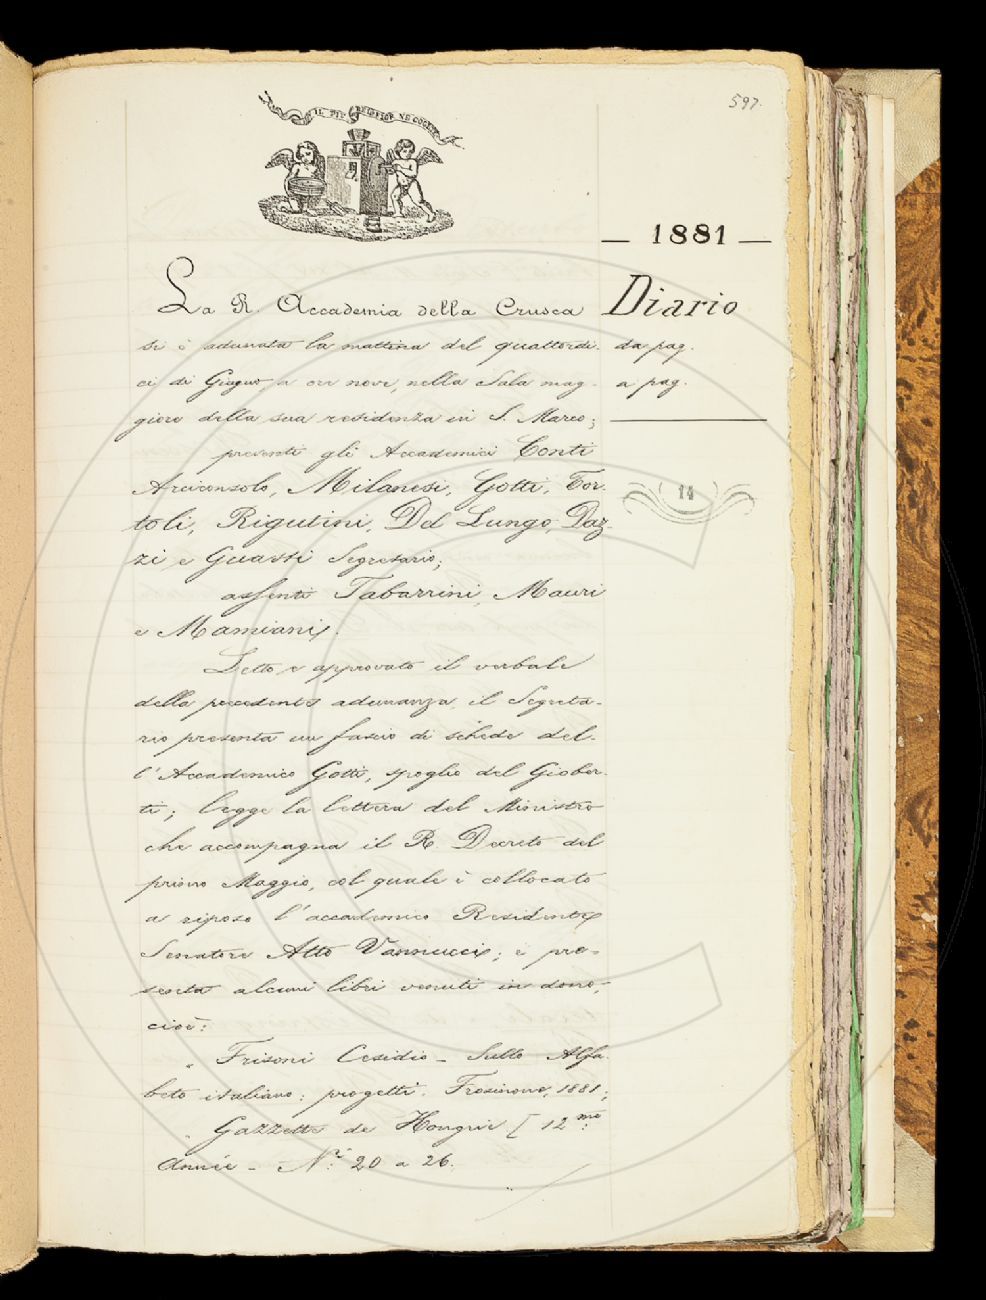 597.
IL PIÙ BEL FIOR NE COGLIE
— 1881 —
Diario
da pag.
a pag.
14
La R. Accademia della Crusca
si è adunata la mattina del quattordi-
ci di Giugno a ore nove, nella Sala mag-
giore della sua residenza in S. Marco;
presenti gli Accademici Conti
Arciconsolo, Milanesi, Gotti, Tor-
toli, Rigutini, Del Lungo, Daz-
zi e Guasti Segretario;
assenti Tabarrini, Mauri
e Mamiani.
Letto e approvato il verbale
della precedente adunanza, il Segreta-
rio presenta un fascio di schede del-
l'Accademico Gotti, spoglio del Giober-
ti; legge la lettera del Ministro
che accompagna il R. Decreto del
primo Maggio, col quale è collocato
a riposo l'accademico Residente
Senatore Atto Vannucci; e pre-
senta alcuni libri venuti in dono,
cioè:
" Frisoni Cesidio - Sullo Alfa-
beto italiano; progetti. Frosinone, 1881;
" Gazzette de Hongrie [12.mo
Année - N.i 20 a 26.